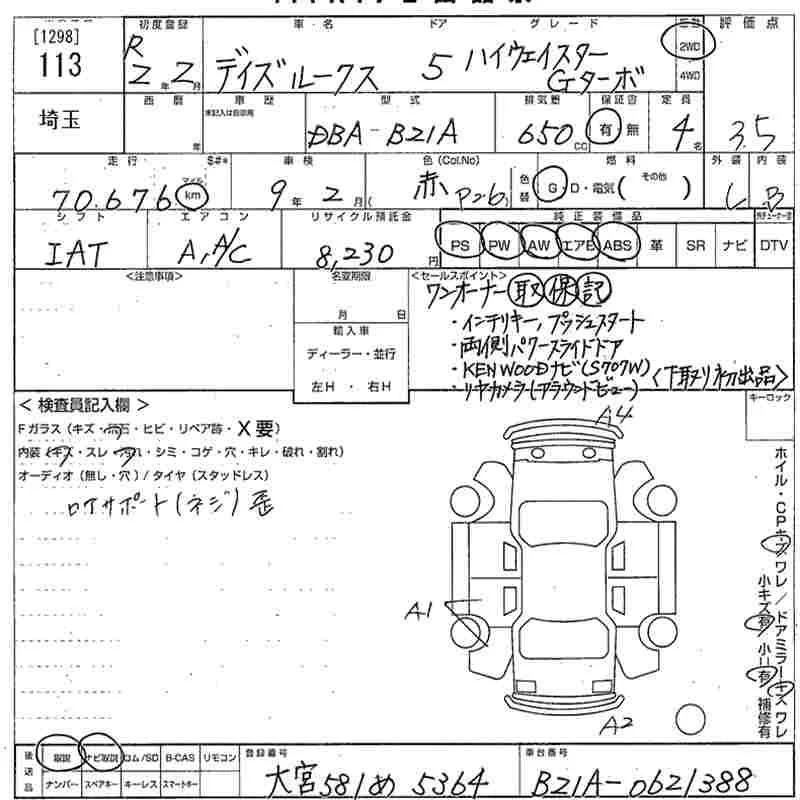 初度登録 車・名 ドア グレード 駆動 評価点
[1298]
113
R 2年 2月 デイズルークス 5 ハイウェイスター Gターボ 2WD 4WD
埼玉 西暦 年 車歴 型式 排気量 保証書 定員
未記入は自家用
DBA-B21A 650cc 有・無 4名 3.5
走行 S#* 車検 色(Col.No) 燃料 外装 内装
70,676 マイル km 9年 2月 ( 赤 P26 色替 G・D・電気( その他 ) C B
シフト エアコン リサイクル預託金 純正装備品
IAT A,A/C 8,230円 PS PW AW エアB ABS 革 SR ナビ DTV
<注意事項> 名変期限 <セールスポイント>
月 日 ワンオーナー 取 保 記
輸入車 ・インテリキー,プッシュスタート
ディーラー・並行 ・両側パワースライドドア
・KENWOODナビ(S707W)
左H ・ 右H ・リヤカメラ(アラウンドビュー) <下取り初出品>
< 検査員記入欄 > キーロック
Fガラス(キズ・飛石・ヒビ・リペア跡・X要)
内装(キズ・スレ・汚れ・シミ・コゲ・穴・キレ・破れ・割れ)
オーディオ(無し・穴)/タイヤ(スタッドレス)
ロアサポート(ネジ)歪
A4
A1
A2
ホイル・CPキズ ワレ/ドアミラーキズ ワレ
小キズ有 小凹有 補修有
後送品 取説 ナビ取説 ロム/SD B-CAS リモコン 登録番号 車台番号
ナンバー スペアキー キーレス スマートキー 大宮581め5364 B21A-0621388